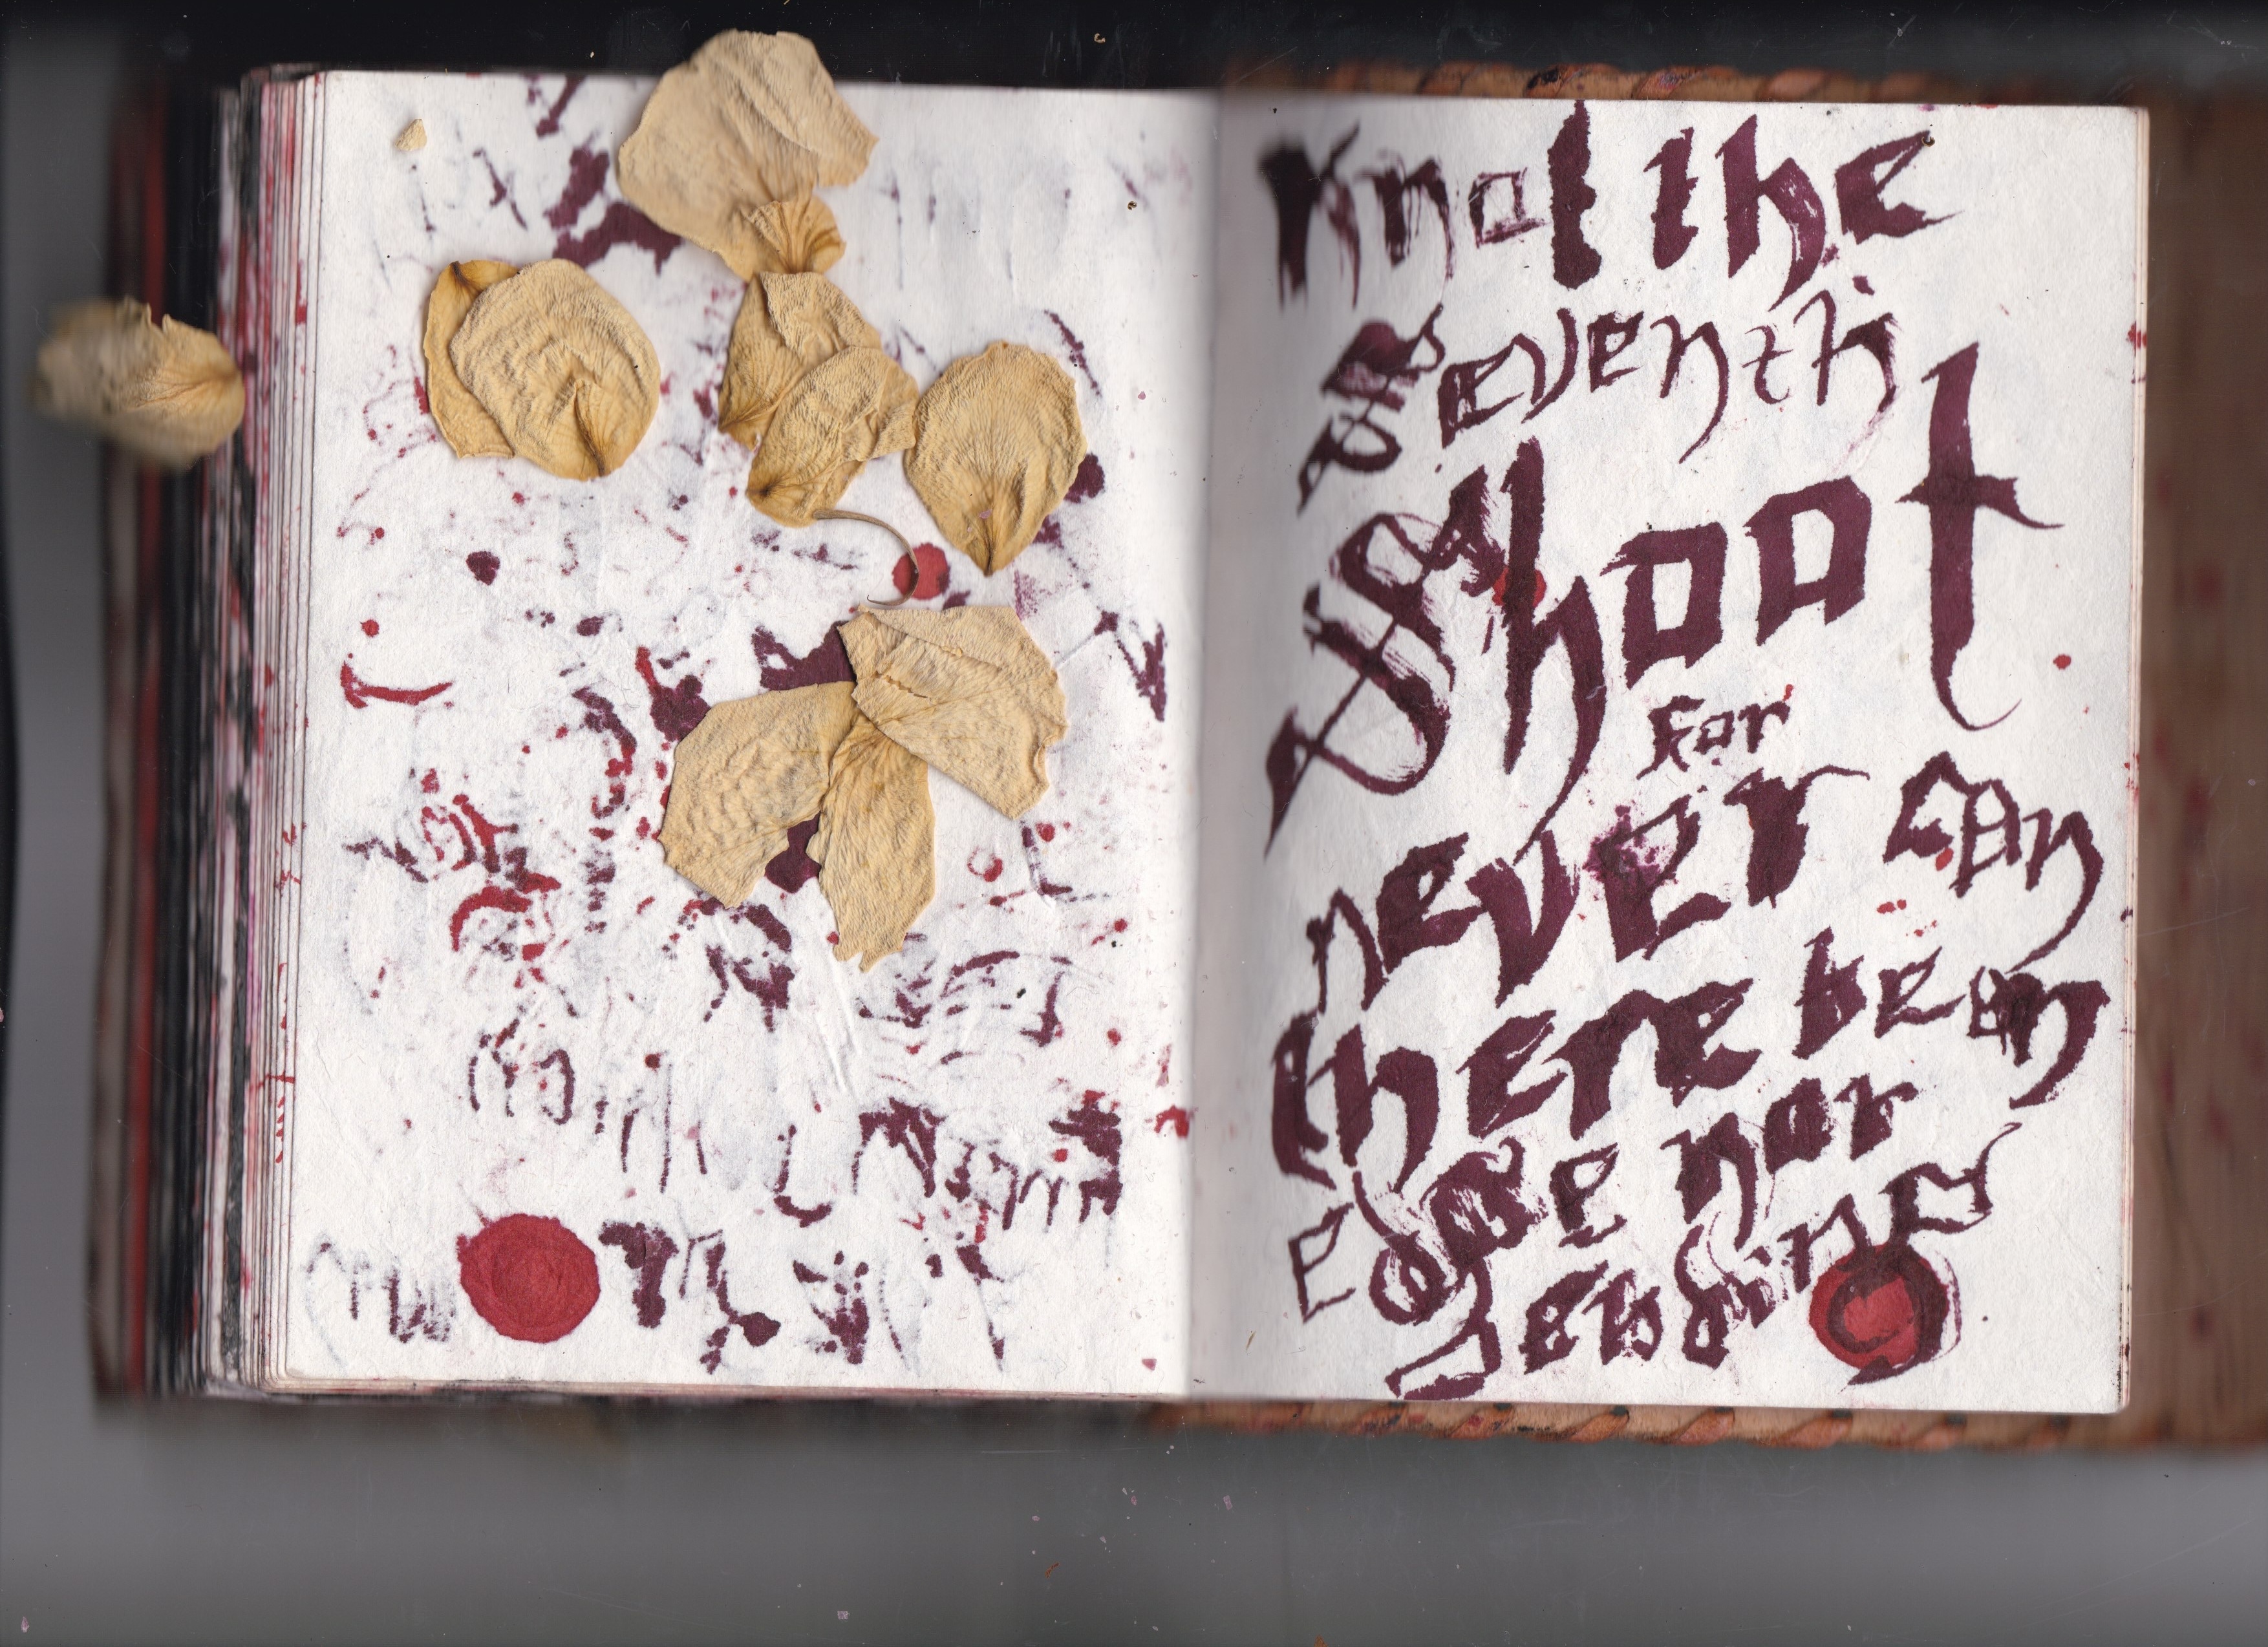 Knot the
seventh
Shoot
For
never can
there be an
Edge nor